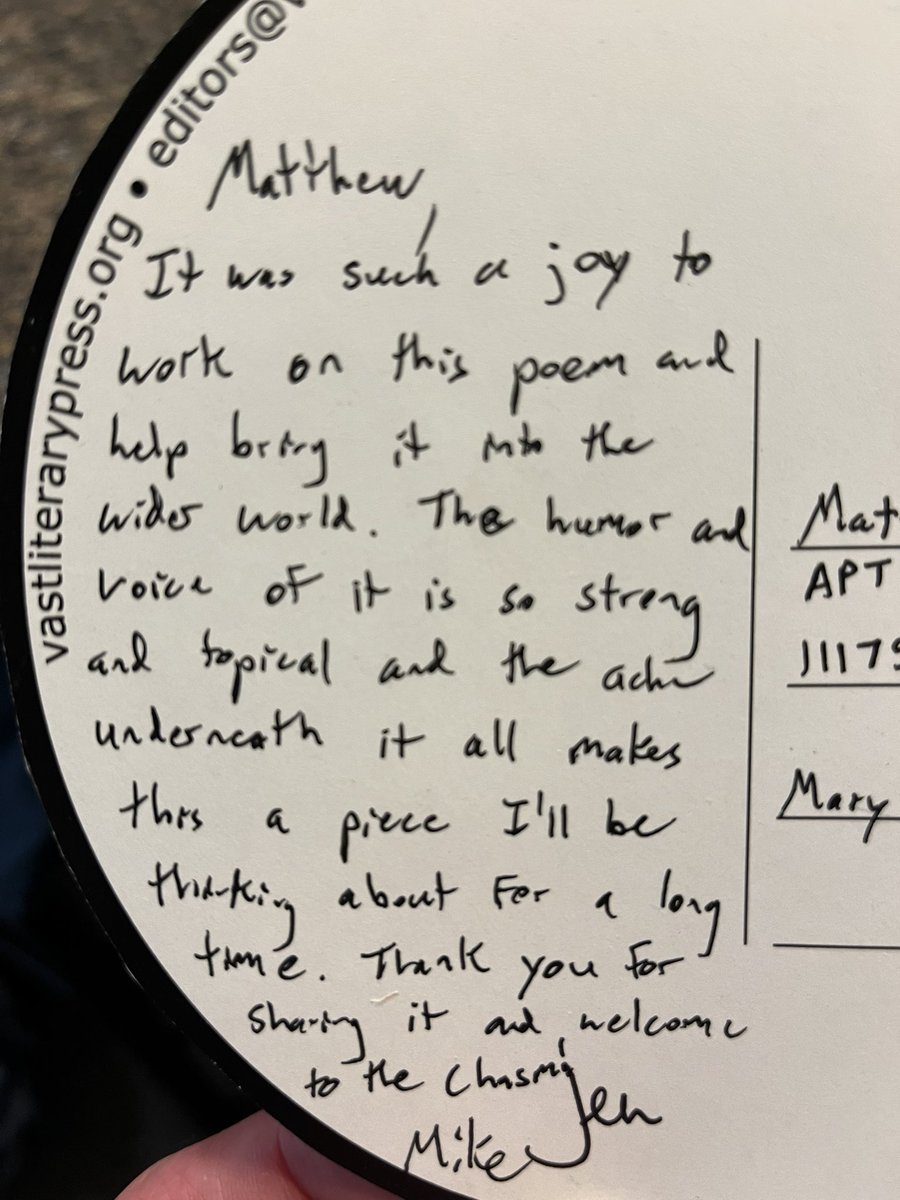 vastliterarypress.org • editors@v
Matthew,
It was such a joy to
work on this poem and
help bring it into the
wider world. The humor and
voice of it is so strong
and topical and the ache
underneath it all makes
this a piece I'll be
thinking about for a long
time. Thank you for
sharing it and welcome
to the chasm!
Jen
Mike
Mat
APT
11179
Mary